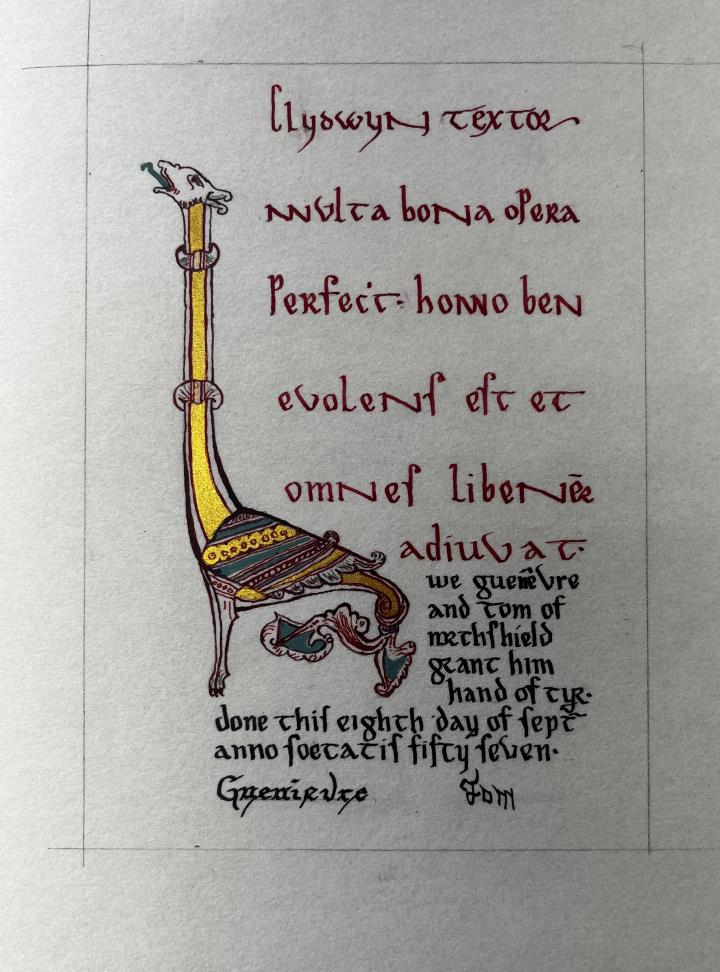 llydwyn textor
multa bona opera
Perfecit· homo ben
evolens est et
omnes libenter
adiuvat·
we guenievre
and tom of
northshield
grant him
hand of tyr·
done this eighth day of sept
anno soetatis fifty seven·
Guenievre Tom